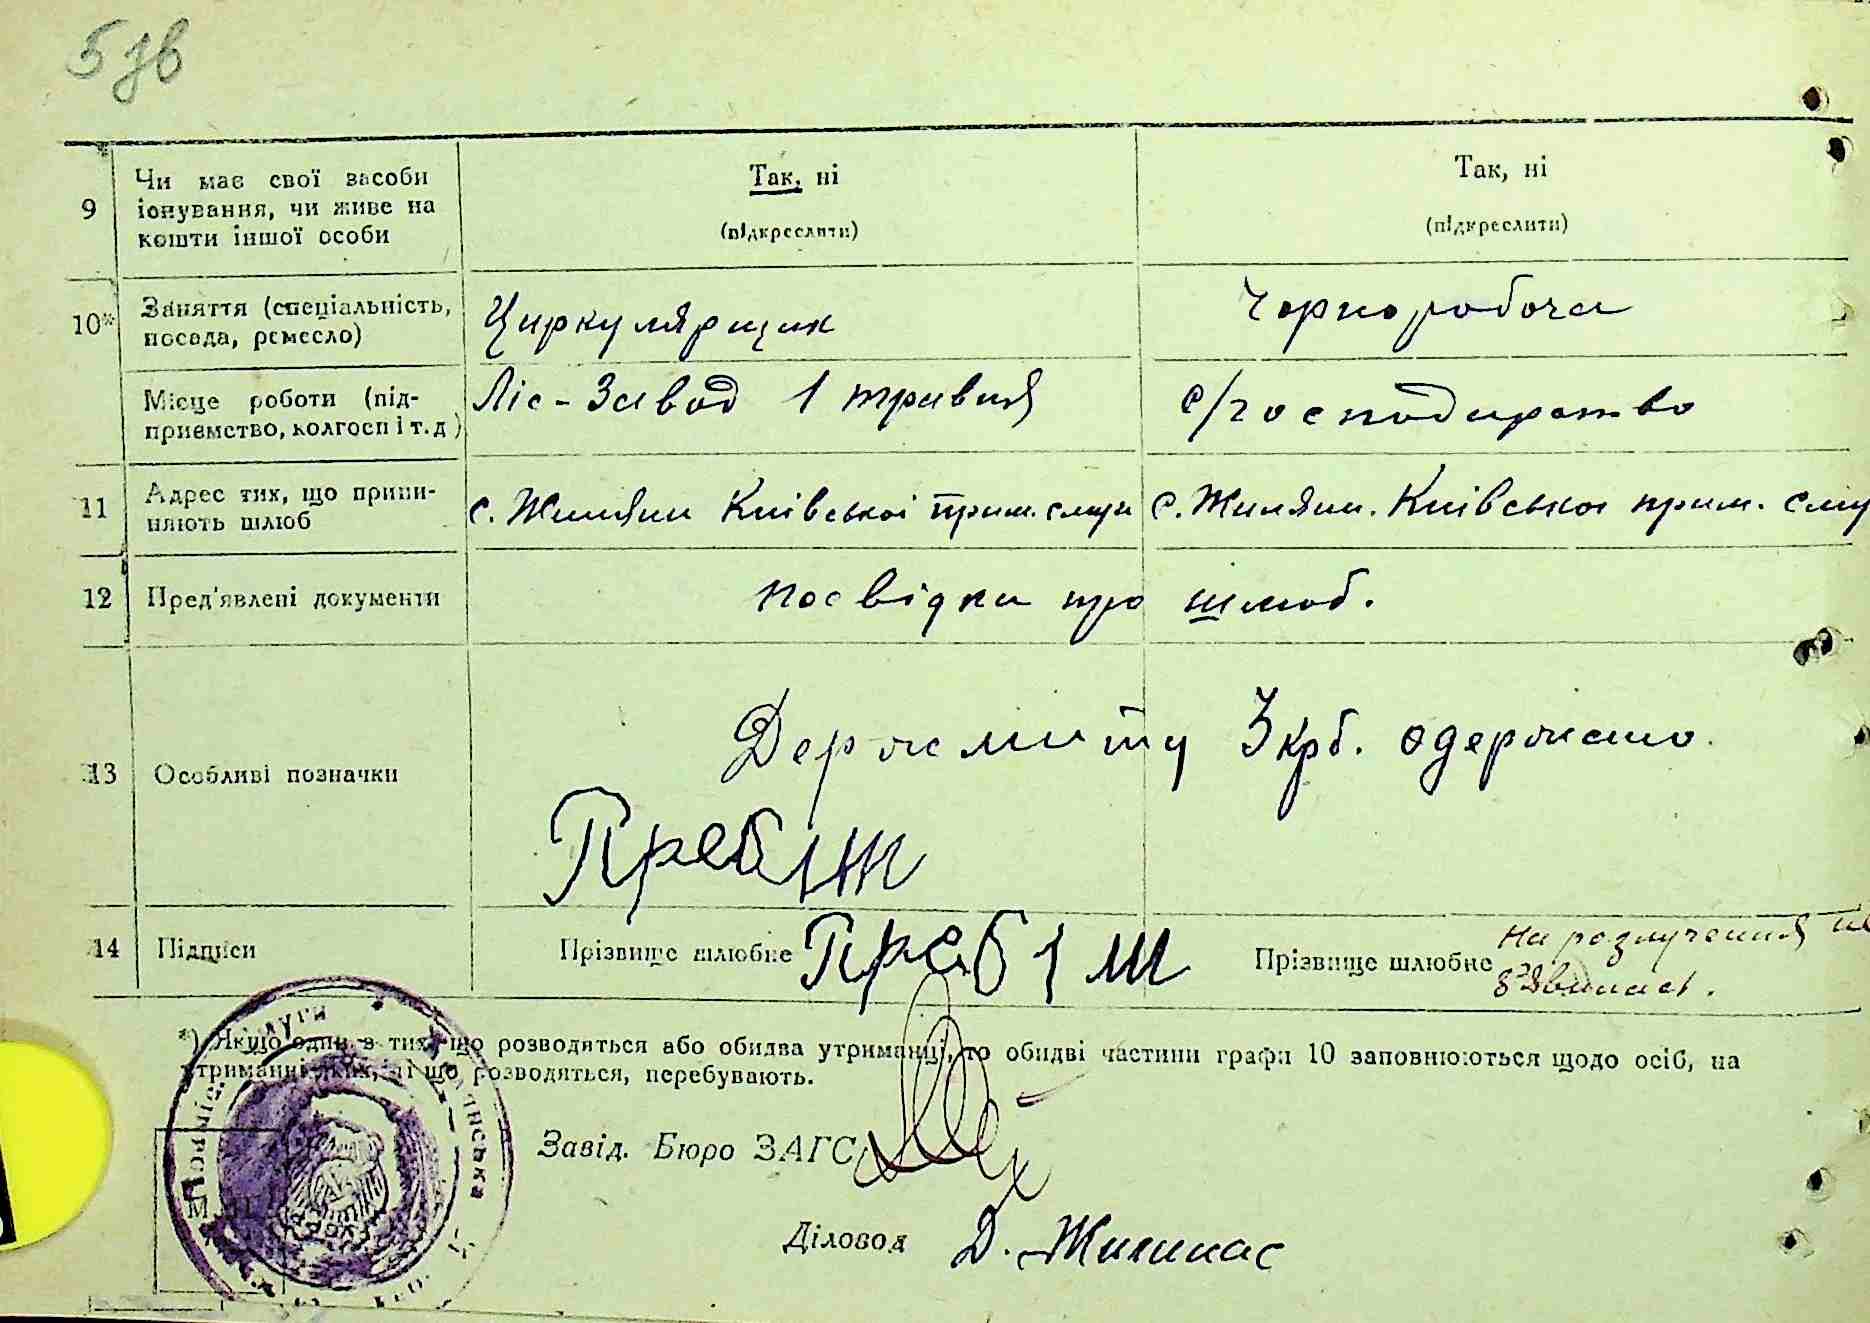 5 зв
9
Чи має свої засоби
існування, чи живе на
кошти іншої особи
Так, ні
(підкреслити)
Так, ні
(підкреслити)
10*
Заняття (спеціальність,
посада, ремесло)
Циркулярщик
Чорноробоча
Місце роботи (під-
приємство, колгосп і т. д)
Ліс-Завод 1 травня
с/господарство
11
Адрес тих, що припи-
няють шлюб
с. Жиляни Київської прим. смуги
с. Жиляни. Київської прим. сму
12
Пред'явлені документи
посвідки про шлюб.
13
Особливі позначки
Держмиту 3 крб. одержано.
14
Підписи
Прізвище шлюбне
Прізвище шлюбне
на розлучення не
зявилась.
*) Якщо один з тих, що розводяться або обидва утриманці, то обидві частини графи 10 заповнюються щодо осіб, на
утриманні яких, ті що розводяться, перебувають.
Завід. Бюро ЗАГС
Діловод